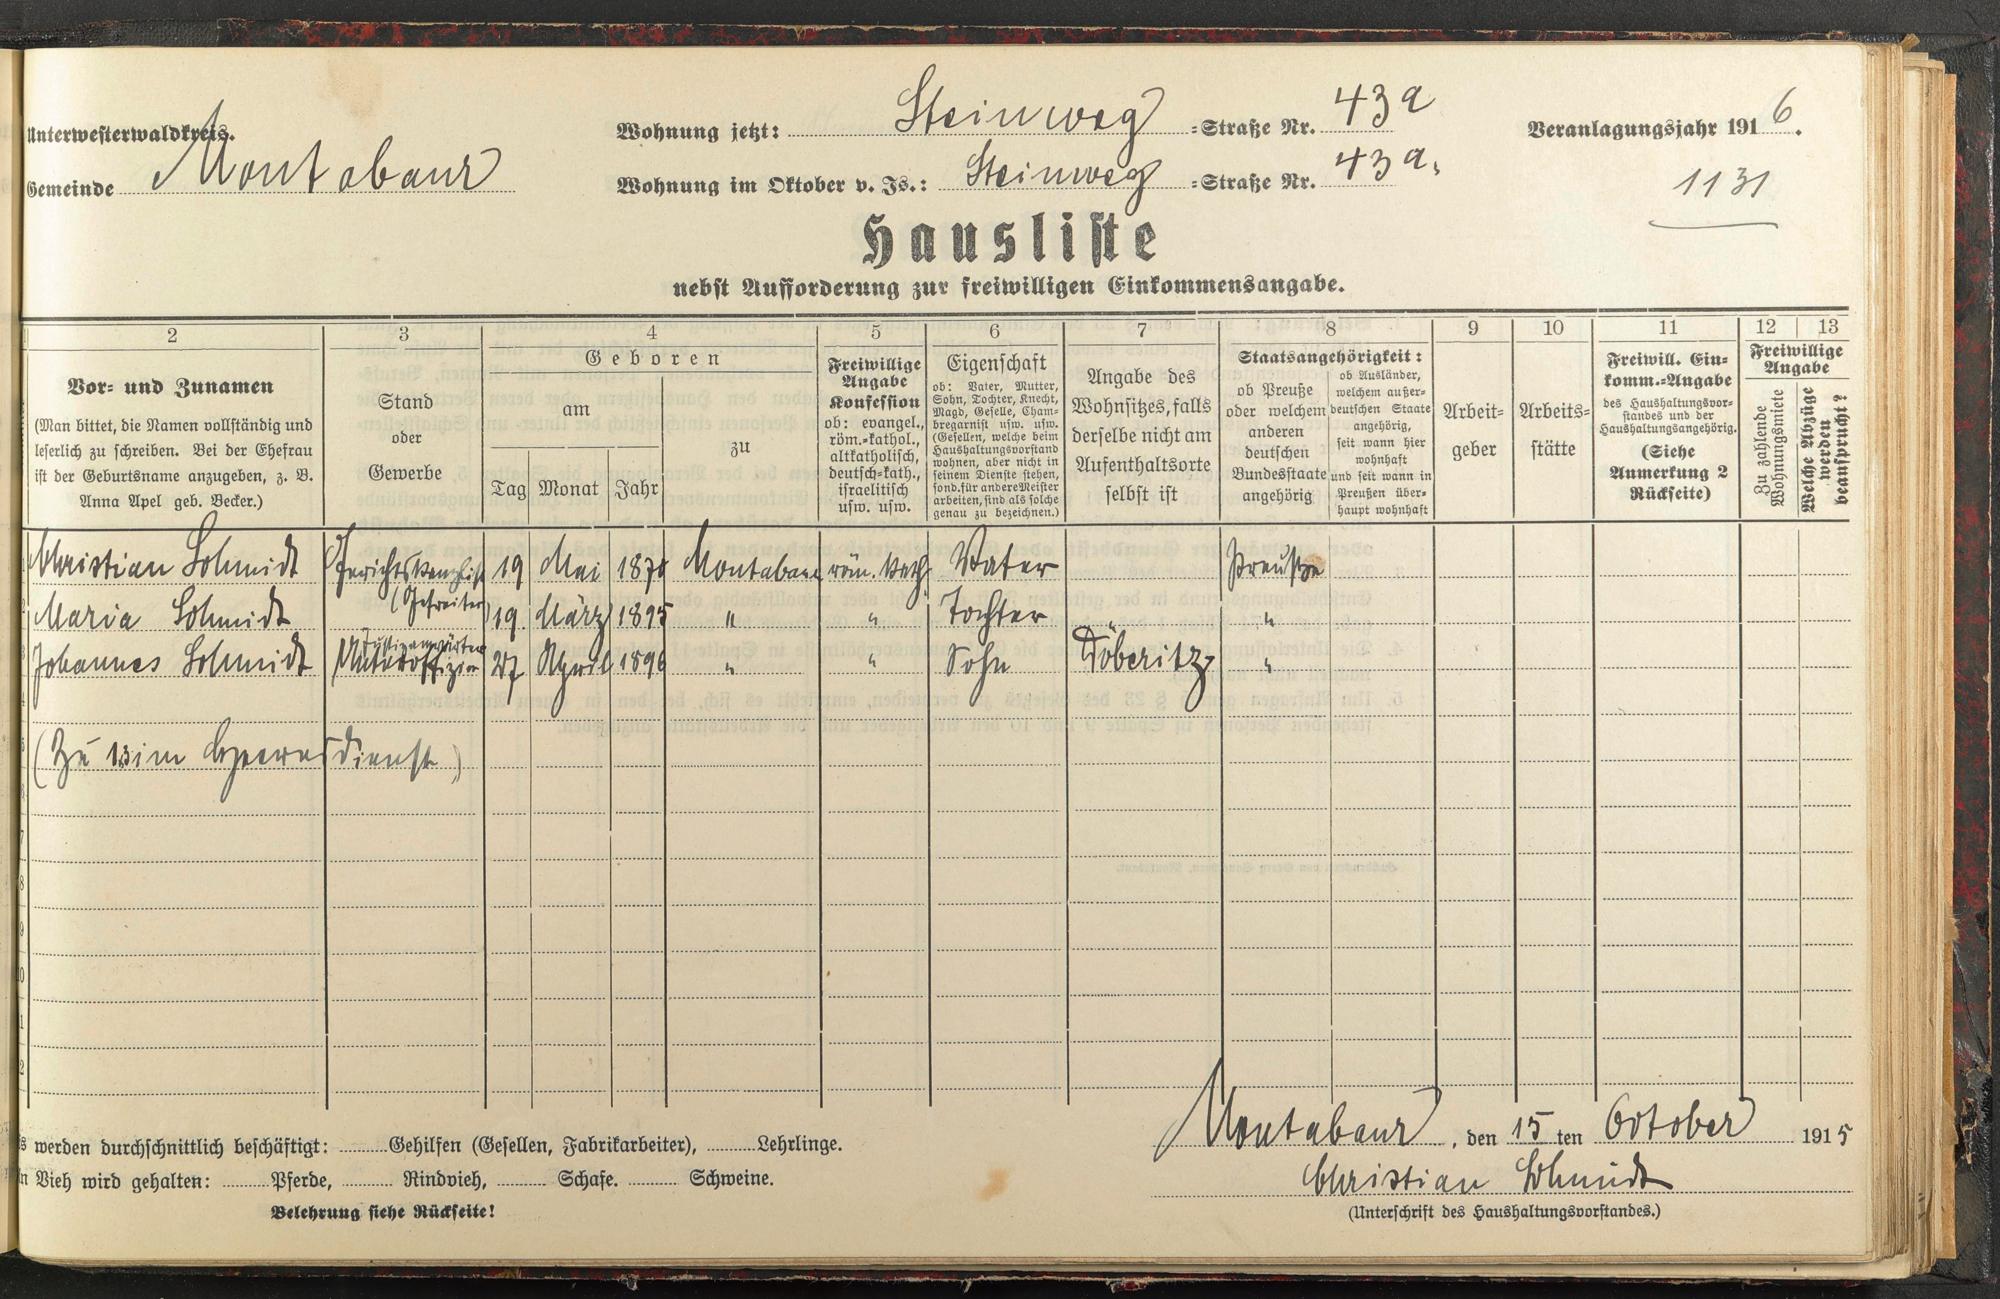 Unterwesterwaldkreis.
Gemeinde Montabaur
Wohnung jetzt: Steinweg =Straße Nr. 43 a
Wohnung im Oktober v. Js.: Steinweg =Straße Nr. 43 a.
Veranlagungsjahr 1916.
1131
Hausliste
nebst Aufforderung zur freiwilligen Einkommensangabe.
2 3 4 5 6 7 8 9 10 11 12 13
Vor- und Zunamen
(Man bittet, die Namen vollständig und
leserlich zu schreiben. Bei der Ehefrau
ist der Geburtsname anzugeben, z. B.
Anna Apel geb. Becker.)
Stand
oder
Gewerbe
Geboren
am
Tag Monat Jahr
zu
Freiwillige
Angabe
Konfession
ob: evangel.,
röm.-kathol.,
altkatholisch,
deutsch-kath.,
israelitisch
usw. usw.
Eigenschaft
ob: Vater, Mutter,
Sohn, Tochter, Knecht,
Magd, Geselle, Cham-
bregarnist usw. usw.
(Gesellen, welche beim
Haushaltungsvorstand
wohnen, aber nicht in
seinem Dienste stehen,
sond. für andere Meister
arbeiten, sind als solche
genau zu bezeichnen.)
Angabe des
Wohnsitzes, falls
derselbe nicht am
Aufenthaltsorte
selbst ist
Staatsangehörigkeit:
ob Preuße
oder welchem
anderen
deutschen
Bundesstaate
angehörig
ob Ausländer,
welchem außer-
deutschen Staate
angehörig,
seit wann hier
wohnhaft
und seit wann in
Preußen über-
haupt wohnhaft
Arbeit-
geber
Arbeits-
stätte
Freiwill. Ein-
komm.-Angabe
des Haushaltungsvor-
standes und der
Haushaltungsangehörig.
(Siehe
Anmerkung 2
Rückseite)
Freiwillige
Angabe
Zu zahlende
Wohnungsmiete
Welche Abzüge
werden
beansprucht?
Christian Schmidt Gerichtskanzlist 19 Mai 1870 Montabaur röm. kath. Vater Preuße
(Gefreiter)
Maria Schmidt 19. März 1895 " " Tochter "
Justizanwärter
Johannes Schmidt Unteroffizier 27 April 1896 " " Sohn Döberitz "
(Zu 1.3 im Heeresdienst)
es werden durchschnittlich beschäftigt: Gehilfen (Gesellen, Fabrikarbeiter), Lehrlinge.
An Vieh wird gehalten: Pferde, Rindvieh, Schafe. Schweine.
Belehrung siehe Rückseite!
Montabaur, den 15 ten October 1915
Christian Schmidt
(Unterschrift des Haushaltungsvorstandes.)